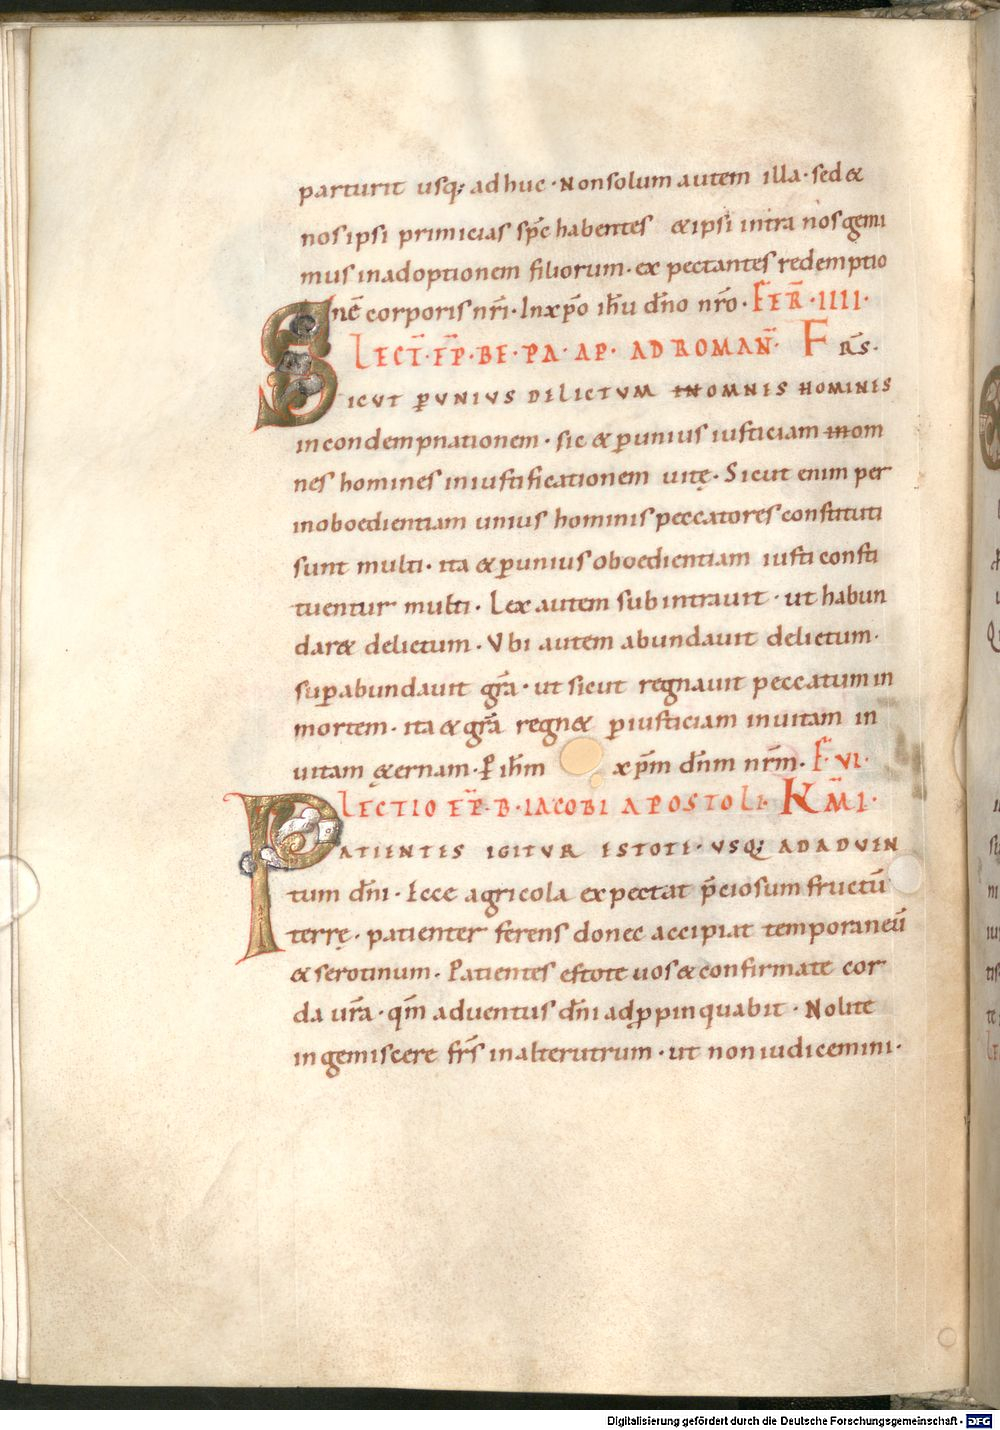 parturit usq; ad huc · Non solum autem illa · sed &
nos ipsi primicias sp̄c habentes & ipsi intra nos gemi
mus in adoptionem filiorum · expectantes redemptio
nē corporis nr̄i · In xp̄o ih̄u dn̄o nr̄o · FER̄ · IIII ·
LECT̄ · EP̄ · BE · PA · AP · AD ROMAN̄ · FRS̄ ·
SICUT ꝑ UNIUS DELICTUM IN OMNIS HOMINIS
in condempnationem · sic & ꝑ unius iusticiam in om
nes homines in iustificationem uitę · Sicut enim per
inoboedientiam unius hominis peccatores constituti
sunt multi · ita & ꝑ unius oboedientiam iusti consti
tuentur multi · Lex autem subintrauit · ut habun
dar& delictum · Vbi autem abundauit delictum ·
suꝑabundauit gr̄a · ut sicut regnauit peccatum in
mortem · ita & gr̄a regn& ꝑ iusticiam in uitam in
uitam ęternam · P ih̄m xp̄m dn̄m nr̄m · F̄ · VI ·
LECTIO EP̄ · B · IACOBI APOSTOLI · KM̄I ·
PATIENTES IGITUR ESTOTE · USQ; AD ADUEN
tum dn̄i · Ecce agricola expectat p̄ciosum fructū
terrę · patienter ferens donec accipiat temporaneū
& serotinum · Patientes estote uos & confirmate cor
da ur̄a · qm̄ aduentus dn̄i adꝓpinquabit · Nolite
ingemiscere frs̄ in alterutrum · ut non iudicemini ·
Digitalisierung gefördert durch die Deutsche Forschungsgemeinschaft - DFG